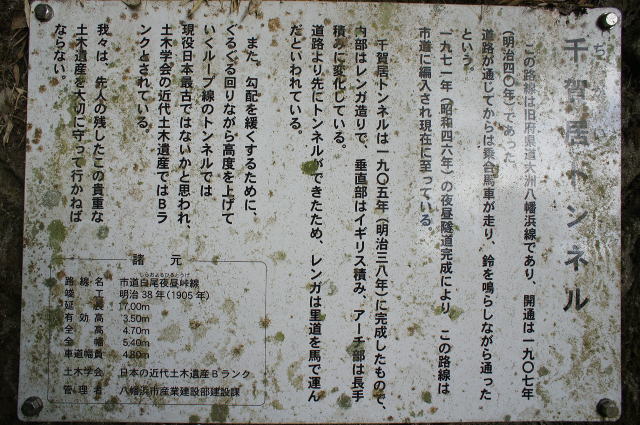 千賀居トンネル
この路線は旧府県道大洲八幡浜線であり、開通は一九〇七年
(明治四〇年)であった。
道路が通じてからは乗合馬車が走り、鈴を鳴らしながら通った
という。
一九七一年(昭和四六年)の夜昼隧道完成により、この路線は
市道に編入され現在に至っている。
千賀居トンネルは一九〇五年(明治三八年)に完成したもので、
内部はレンガ造りで、垂直部はイギリス積み、アーチ部は長手
積みに変化している。
道路より先にトンネルができたため、レンガは里道を馬で運ん
だといわれている。
また、勾配を緩くするために、
ぐるぐる回りながら高度を上げて
いくループ線のトンネルでは
現役日本最古ではないかと思われ、
土木学会の近代土木遺産ではBラ
ンクとされている。
我々は、先人の残したこの貴重な
土木遺産を大切に守って行かねば
ならない。
諸元
路線名 市道白尾夜昼峠線
竣工 明治38年(1905年)
延長 17.00m
有効高 3.50m
全高 4.70m
全幅 5.40m
車道幅員 4.80m
土木学会 日本の近代土木遺産Bランク
管理者 八幡浜市産業建設部建設課